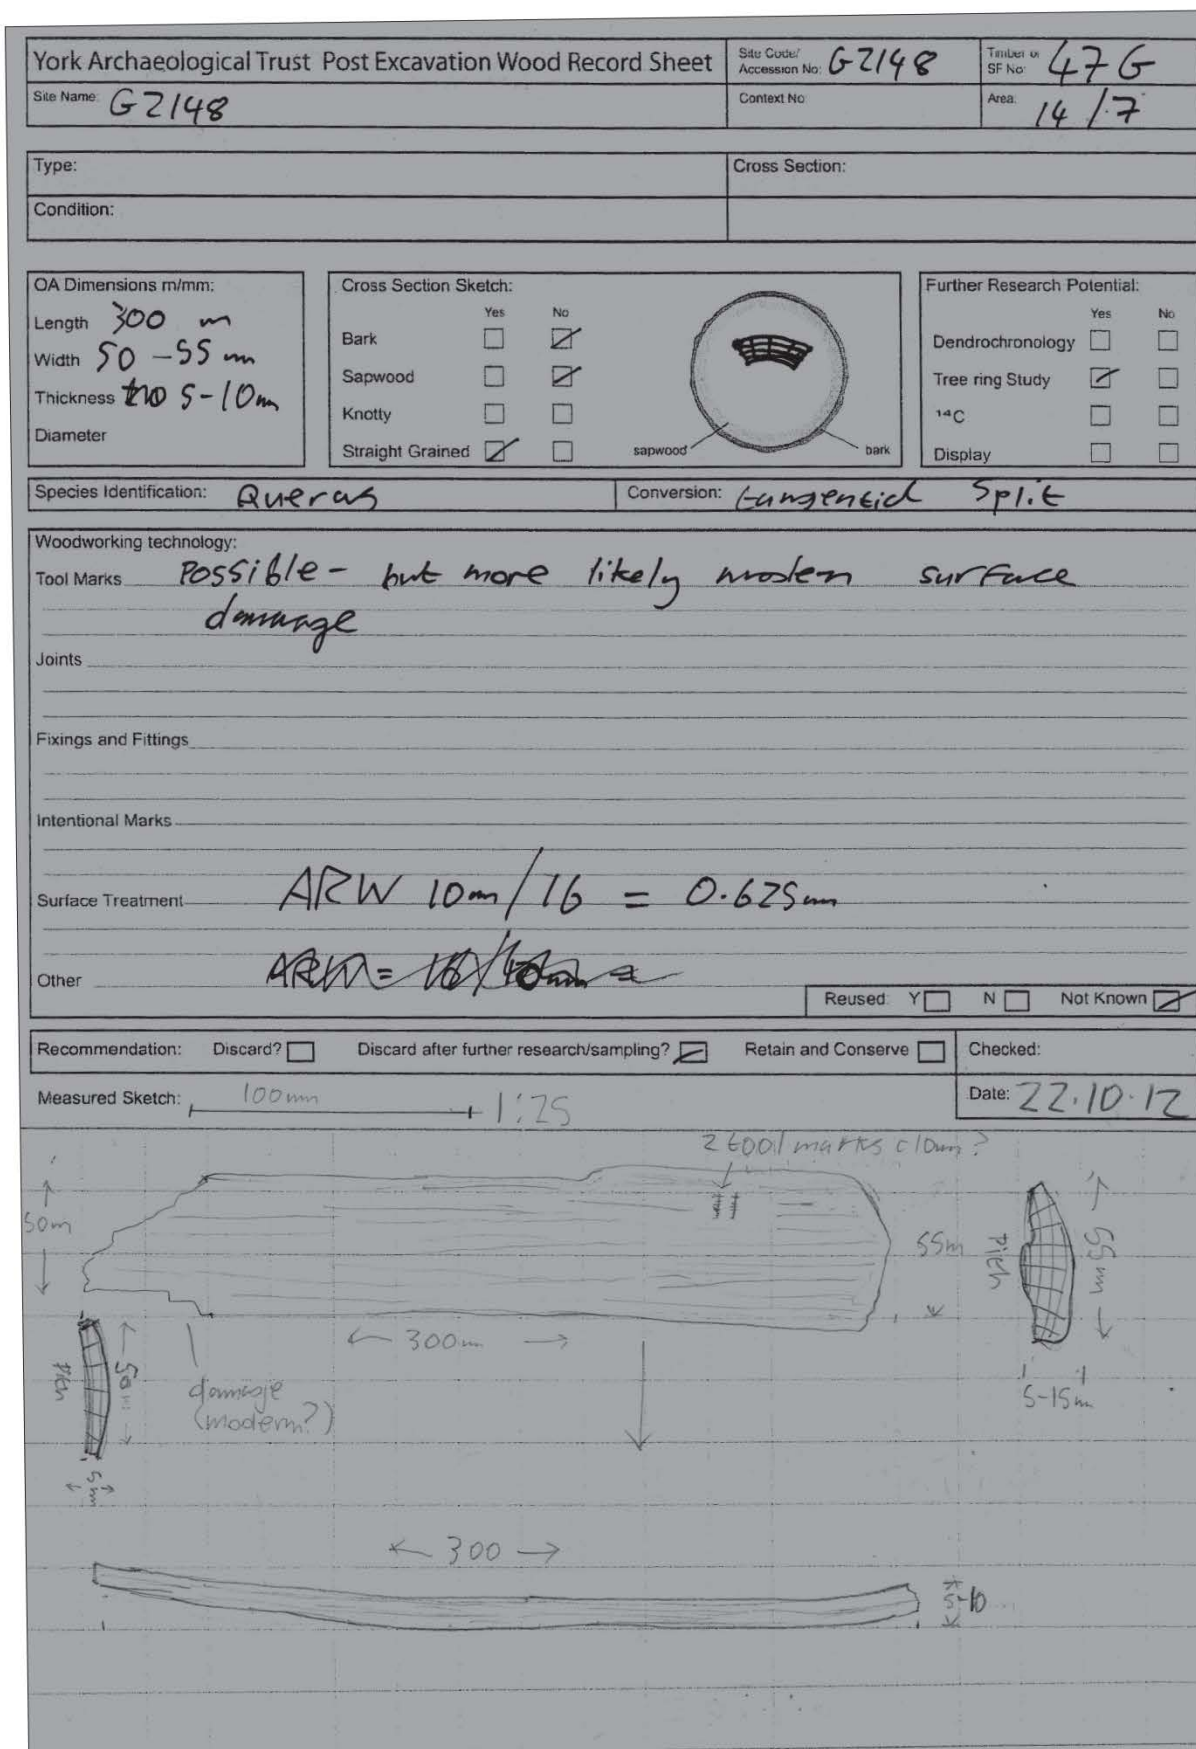 York Archaeological Trust Post Excavation Wood Record Sheet
Site Code/ Accession No: GZ148
Timber or SF No: 47G
Site Name: GZ148
Context No
Area: 14/7
Type:
Cross Section:
Condition:
OA Dimensions m/mm:
Length 300 m
Width 50-55 mm
Thickness 5-10m
Diameter
Cross Section Sketch:
Yes No
Bark
Sapwood
Knotty
Straight Grained
sapwood
bark
Further Research Potential:
Yes No
Dendrochronology
Tree ring Study
14C
Display
Species Identification: Quercus
Conversion: tangential Split
Woodworking technology:
Tool Marks Possible - but more likely modern surface
damage
Joints
Fixings and Fittings
Intentional Marks
Surface Treatment ARW 10m/16 = 0.625mm
Other
Reused: Y N Not Known
Recommendation: Discard? Discard after further research/sampling? Retain and Conserve
Checked:
Measured Sketch: 100mm 1:25
Date: 22.10.12
2 tool marks c10mm?
50m
55m
Pith
55m
300m
5-15m
Pith
50m
damage
(modern?)
5mm
300
5-10